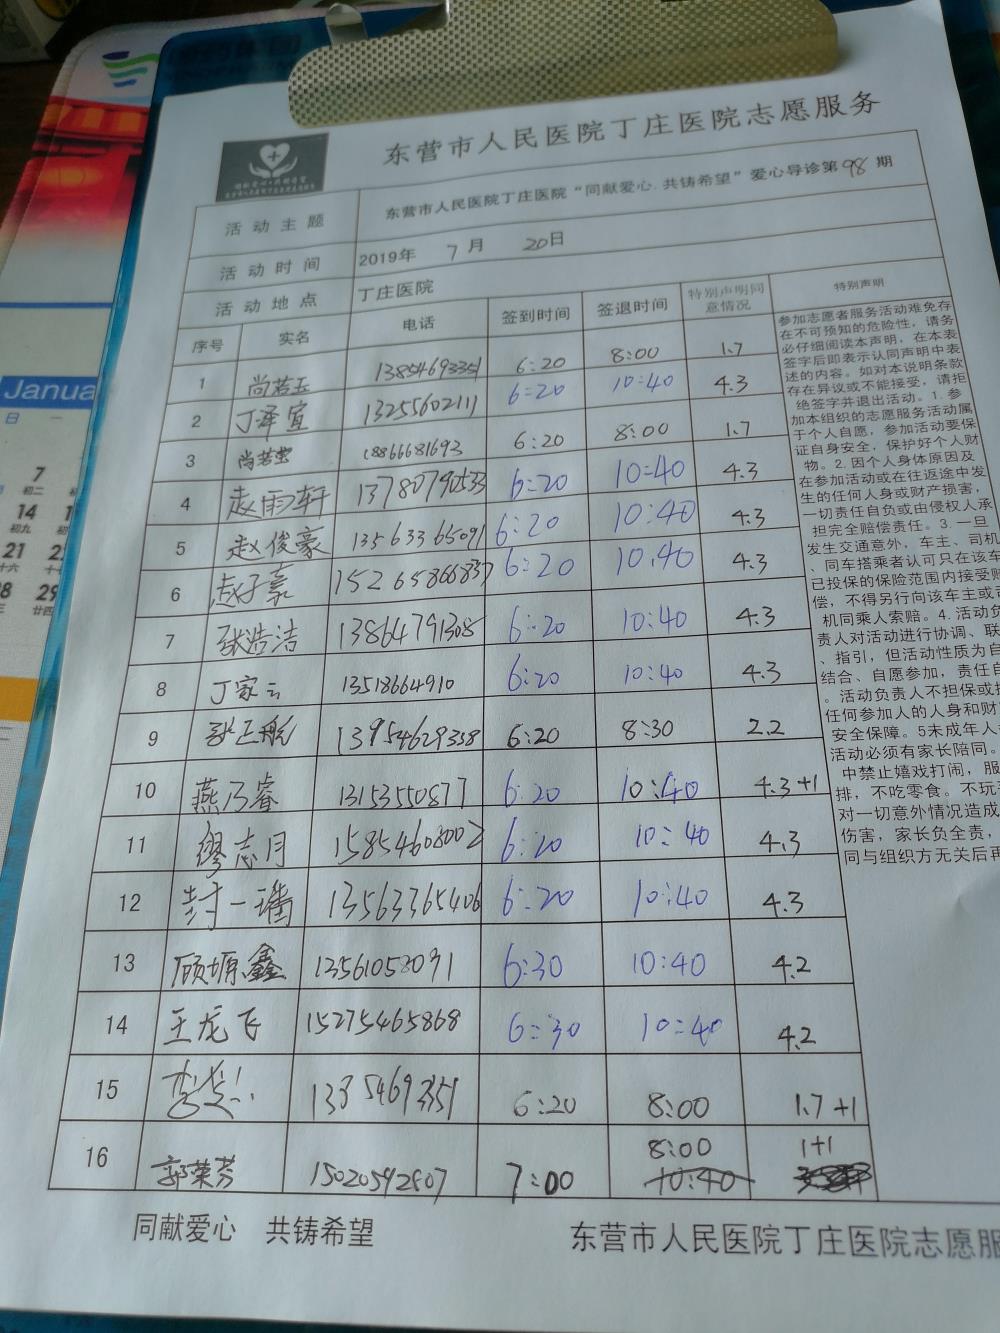 东营市人民医院丁庄医院志愿服务
活动主题 东营市人民医院丁庄医院“同献爱心.共铸希望”爱心导诊第98期
活动时间 2019年 7月 20日
活动地点 丁庄医院
序号 实名 电话 签到时间 签退时间 特别声明同意情况 特别声明
1 尚若玉 13854693351 6:20 8:00 1.7
2 丁泽宣 13255602111 6:20 10:40 4.3
3 18866681693 6:20 8:00 1.7
4 赵雨轩 13780790533 6:20 10:40 4.3
5 赵俊豪 13563365091 6:20 10:40 4.3
6 赵子豪 15265866837 6:20 10:40 4.3
7 张浩洁 13864791308 6:20 10:40 4.3
8 丁家云 13518664910 6:20 10:40 4.3
9 张正航 13954629338 6:20 8:30 2.2
10 燕乃睿 13153550877 6:20 10:40 4.3+1
11 缪志月 15854608002 6:20 10:40 4.3
12 封一璠 13563365406 6:20 10:40 4.3
13 顾塬鑫 13561058091 6:30 10:40 4.2
14 王龙飞 15275465868 6:30 10:40 4.2
15 13354693351 6:20 8:00 1.7+1
16 郭荣芬 15020592807 7:00 8:00 1+1
10:40
参加志愿者服务活动难免存
在不可预知的危险性，请务
必仔细阅读本声明，在本表
签字后即表示认同声明中表
述的内容。如对本说明条款
存在异议或不能接受，请拒
绝签字并退出活动。1.参
加本组织的志愿服务活动属
于个人自愿，参加活动要保
证自身安全，保护好个人财
物。2.因个人身体原因及
在参加活动或在往返途中发
生的任何人身或财产损害，
一切责任自负或由侵权人承
担完全赔偿责任。3.一旦
发生交通意外，车主、司机
、同车搭乘者认可只在该车
已投保的保险范围内接受赔
偿，不得另行向该车主或司
机同乘人索赔。4.活动负
责人对活动进行协调、联
、指引，但活动性质为自
结合、自愿参加，责任自
。活动负责人不担保或
任何参加人的人身和财
安全保障。5未成年人
活动必须有家长陪同。
中禁止嬉戏打闹，服
排，不吃零食。不玩
对一切意外情况造成
伤害，家长负全责，
同与组织方无关后再
同献爱心 共铸希望
东营市人民医院丁庄医院志愿服
Janua
日
7
初二
14
初九
21
十六
29
廿四